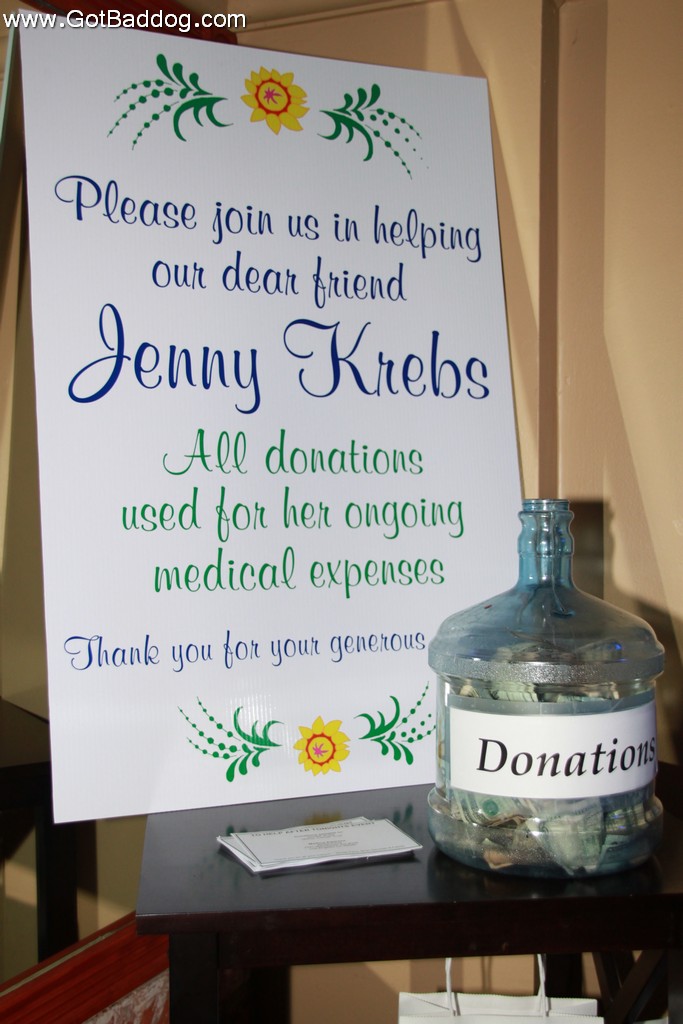 www.GotBaddog.com
Please join us in helping
our dear friend
Jenny Krebs
All donations
used for her ongoing
medical expenses
Thank you for your generous
Donations